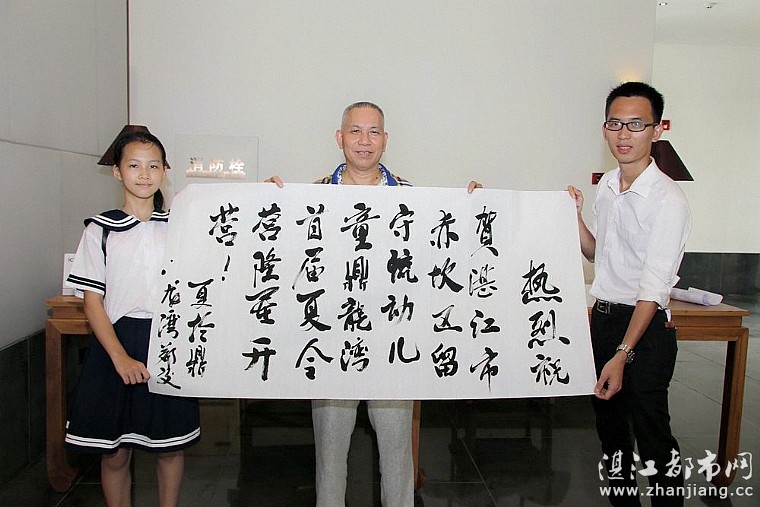 消防栓
热烈祝
賀湛江市
赤坎区留
守流动儿
童鼎龍湾
首届夏令
营隆重开
营！
夏於鼎
龙湾
湛江都市网
www.zhanjiang.cc